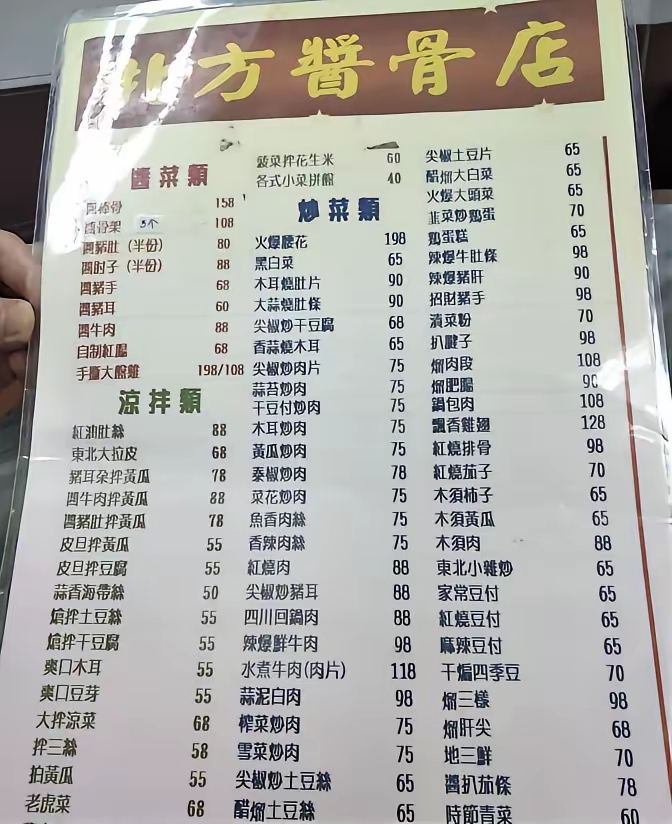 北方醬骨店
醬菜類
醬棒骨 158
醬骨架 5个 108
醬豬肚（半份） 80
醬肘子（半份） 88
醬豬手 68
醬豬耳 60
醬牛肉 88
自制紅腸 68
手撕大盤雞 198/108
涼拌類
紅油肚絲 88
東北大拉皮 68
豬耳朵拌黃瓜 78
醬牛肉拌黃瓜 88
醬豬肚拌黃瓜 78
皮旦拌黃瓜 55
皮旦拌豆腐 55
蒜香海帶絲 50
熗拌土豆絲 55
熗拌干豆腐 55
爽口木耳 55
爽口豆芽 55
大拌涼菜 68
拌三絲 58
拍黃瓜 55
老虎菜 68
菠菜拌花生米 60
各式小菜拼盤 40
炒菜類
火爆腰花 198
黑白菜 65
木耳燒肚片 90
大蒜燒肚條 90
尖椒炒干豆腐 68
香蒜燒木耳 65
尖椒炒肉片 75
蒜苔炒肉 75
干豆付炒肉 75
木耳炒肉 75
黃瓜炒肉 75
泰椒炒肉 78
菜花炒肉 75
魚香肉絲 75
香辣肉絲 75
紅燒肉 88
尖椒炒豬耳 88
四川回鍋肉 88
辣爆鮮牛肉 98
水煮牛肉(肉片) 118
蒜泥白肉 98
榨菜炒肉 75
雪菜炒肉 75
尖椒炒土豆絲 65
醋熘土豆絲 65
尖椒土豆片 65
醋熘大白菜 65
火爆大頭菜 65
韮菜炒鷄蛋 70
鷄蛋糕 65
辣爆牛肚條 98
辣爆豬肝 90
招財豬手 98
漬菜粉 70
扒腱子 98
熘肉段 108
熘肥腸 90
鍋包肉 108
飄香雞翅 128
紅燒排骨 98
紅燒茄子 70
木須柿子 65
木須黃瓜 65
木須肉 88
東北小雜炒 65
家常豆付 65
紅燒豆付 65
麻辣豆付 65
干煸四季豆 70
熘三樣 98
熘肝尖 68
地三鮮 70
醬扒茄條 78
時節青菜 60